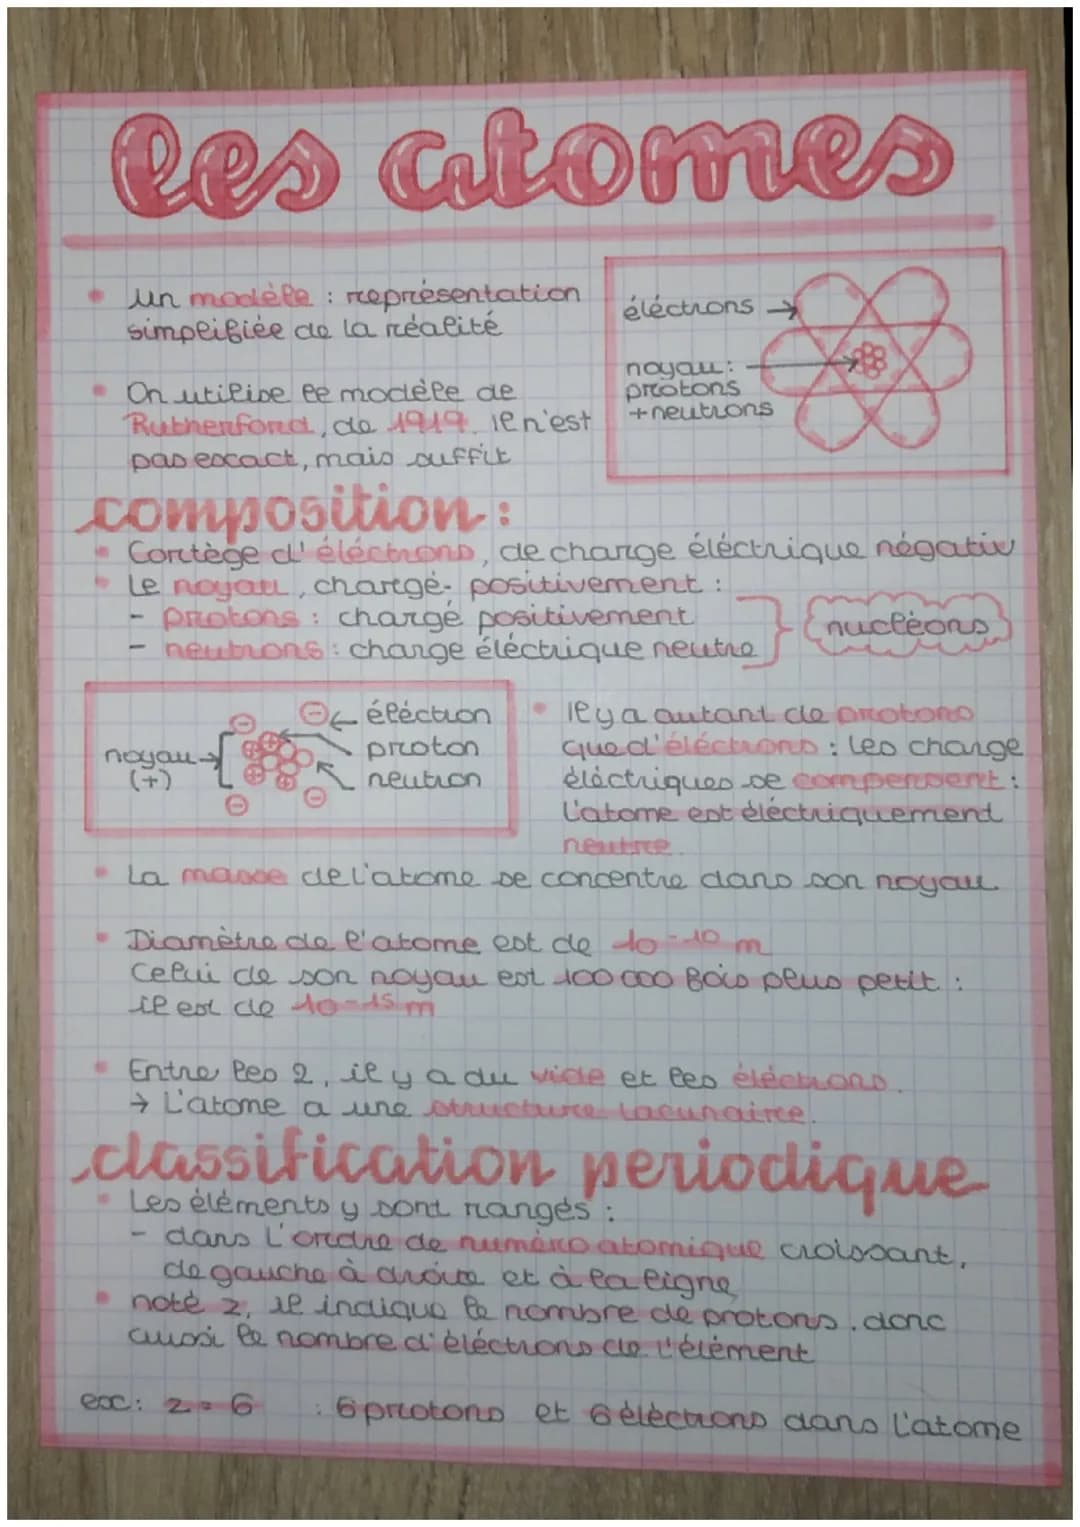 les atomes
• un modèle : représentation
simplifiée de la réalité
• On utilise le modèle de
Rutherford, de 1919. il n'est
pas exact, mais suffit
éléctrons →
noyau :
protons
+ neutrons
composition :
• Cortège d'éléctrons, de charge éléctrique négativ
• Le noyau, chargé positivement :
- protons : chargé positivement
- neutrons : charge éléctrique neutre
nucléons
noyau
(+)
éléctron
proton
neutron
• Il y a autant de protons
que d'éléctrons : les charge
éléctriques se compensent :
L'atome est éléctriquement
neutre.
• La masse de l'atome se concentre dans son noyau
• Diamètre de l'atome est de 10^-10 m
Celui de son noyau est 100 000 fois plus petit :
il est de 10^-15 m
• Entre les 2, il y a du vide et les éléctrons.
→ L'atome a une structure lacunaire.
classification periodique
• Les éléments y sont rangés :
- dans l'ordre de numéro atomique croissant,
de gauche à droite et à la ligne
• noté z, il indique le nombre de protons. donc
aussi le nombre d'éléctrons de l'élément
ex: z = 6 : 6 protons et 6 éléctrons dans l'atome